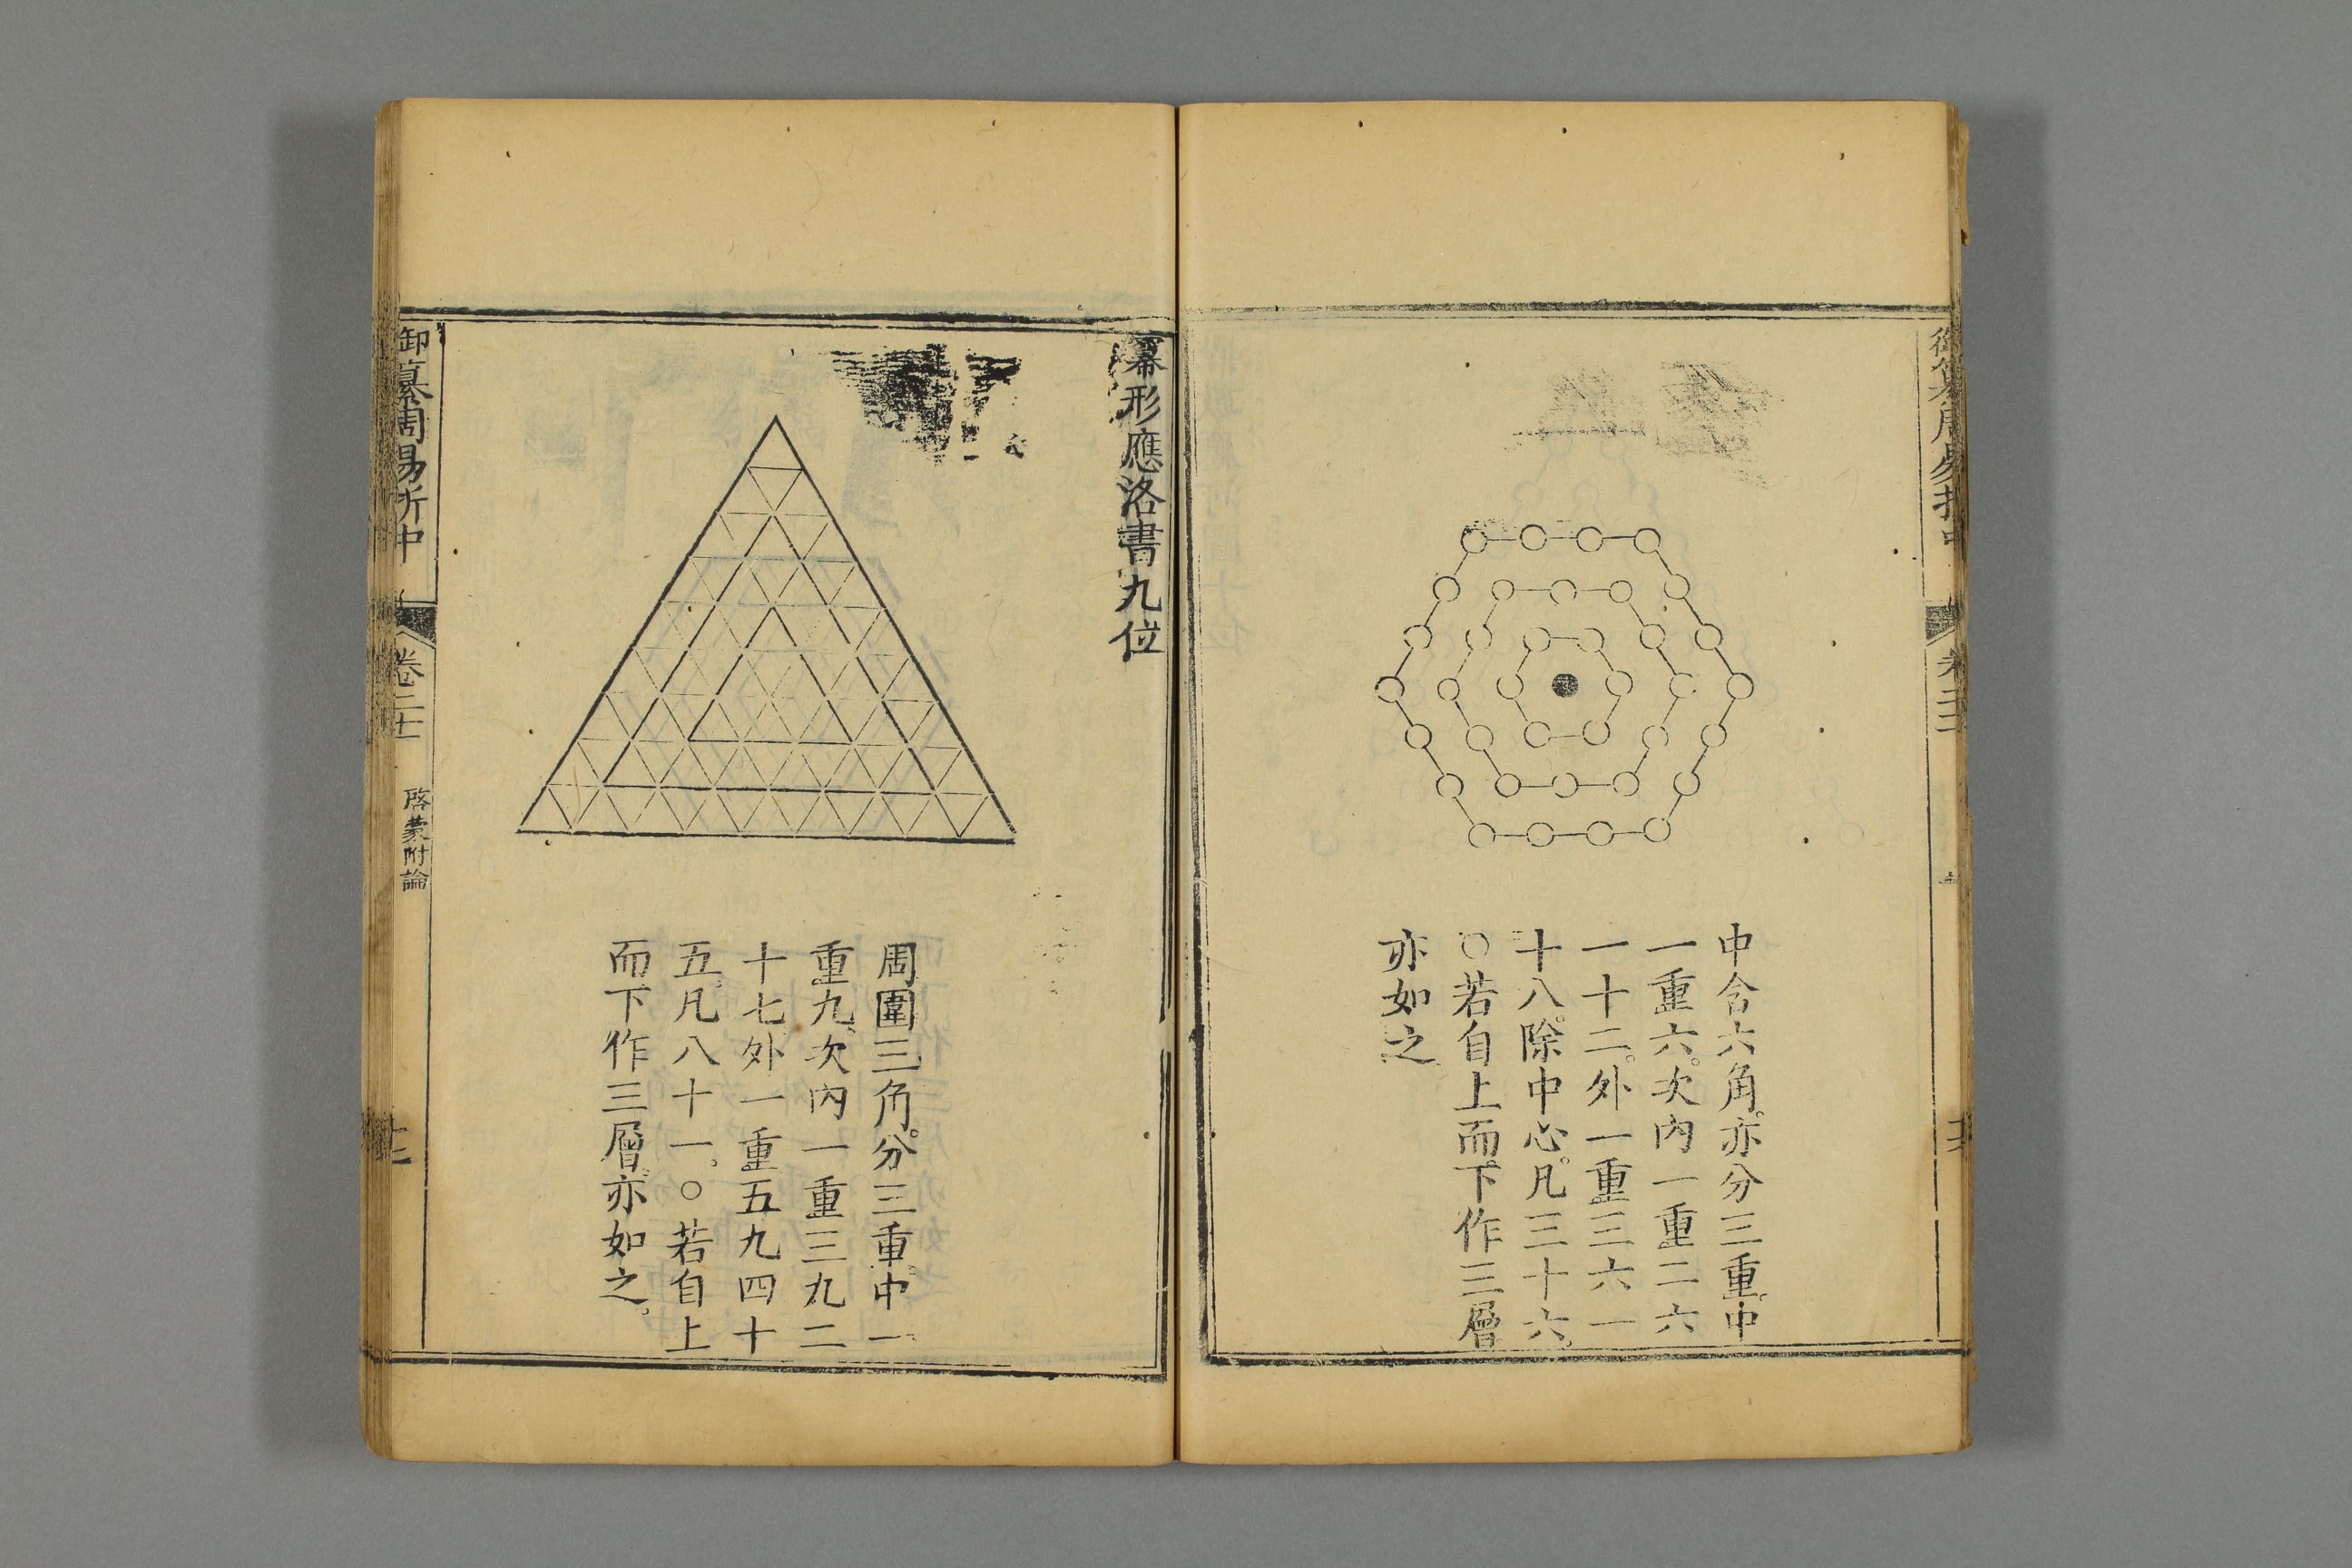 中含六角亦分三重中
一重六次內一重二六
一十二外一重三六一
十八除中心凡三十六
○若自上而下作三層
亦如之
冪形應洛書九位
周圍三角分三重中一
重九次內一重三九二
十七外一重五九四十
五凡八十一○若自上
而下作三層亦如之
御纂周易折中
卷二十
啓蒙附論